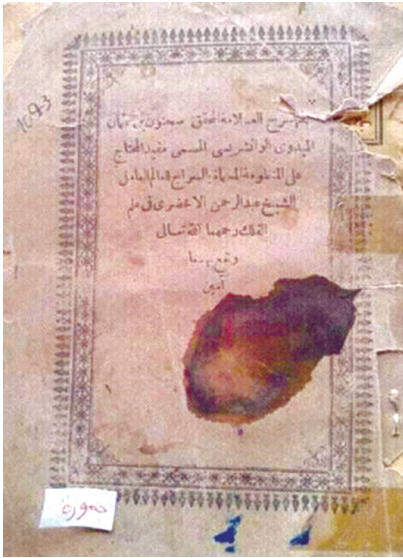 1093
شرح العلامة المحقق سحنون بن عثمان
الميدوى الوانشريسى المسمى مفيد المحتاج
على المنظومة المسماة بالسراج للعالم العامل
الشيخ عبد الرحمن الاخضرى فى علم
الفلك رحمهما الله تعالى
ونفع بهما
آمين